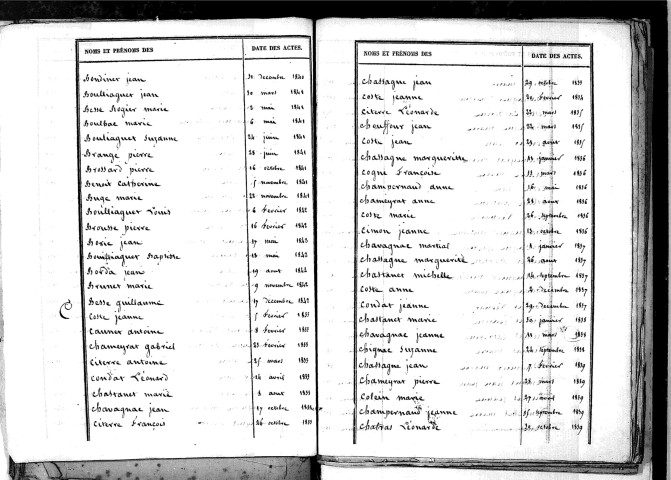 NOMS ET PRÉNOMS DES DATE DES ACTES.
Bondinet jean 30 decembre 1840
Boulliaguet jean 30 mars 1841
Besse Rogier marie 2 mai 1841
Boulbac marie 6 mai 1841
Bouliaguet Suzanne 24 juin 1841
Brange pierre 28 juin 1841
Brossard pierre 16 octobre 1841
Benoit Catherine 5 novembre 1841
Buge marie 22 novembre 1841
Bouilliaguet Louis 6 fevrier 1842
Brousse pierre 16 fevrier 1842
Borie jean 17 mai 1842
Bouilliaguet Baptiste 18 mai 1842
Borda jean 19 aout 1842
Brunet marie 9 novembre 1842
Besse guillaume 17 decembre 1842
C
Coste jeanne 5 fevrier 1833
Caunet antoine 8 fevrier 1833
Chameyrat gabriel 23 fevrier 1833
Citerre antoine 25 mars 1833
Condat Léonard 14 avril 1833
Chastanet marie 1 aout 1833
Chavagnac jean 17 octobre
Citerre François 26 octobre 1833
NOMS ET PRÉNOMS DES DATE DES ACTES.
Chassagne jean 29 octobre 1833
Coste jeanne 20 fevrier 1834
Citerre Léonarde 22 mars 1835
Chouffour jean 22 mars 1835
Coste jean 23 aout 1835
Chassagne margueritte 11 janvier 1836
Cogne Françoise 11 mars 1836
Champernaud anne 16 mai 1836
Chameyrat anne 21 aout 1836
Coste marie 26 septembre 1836
Cimon jeanne 13 octobre 1836
Chavagnac martial 1 janvier 1837
Chassagne marguerite 26 aout 1837
Chastanet michelle 14 septembre 1837
Coste anne 2 decembre 1837
Condat jeanne 29 decembre 1837
Chastanet marie 30 janvier 1838
Chavagnac jeanne 11 mars 1838
Chignac Suzanne 24 septembre 1838
Chassagne jean 7 fevrier 1839
Chameyrat pierre 28 mars 1839
Colein marie 27 avril 1839
Champernaud jeanne 15 septembre 1839
Chabras Léonarde 28 octobre 1839